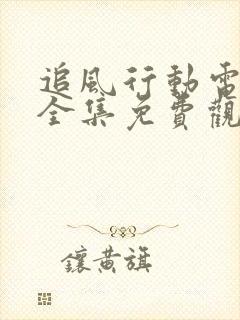 追風行動電
全集免費觀
鑲黄旗